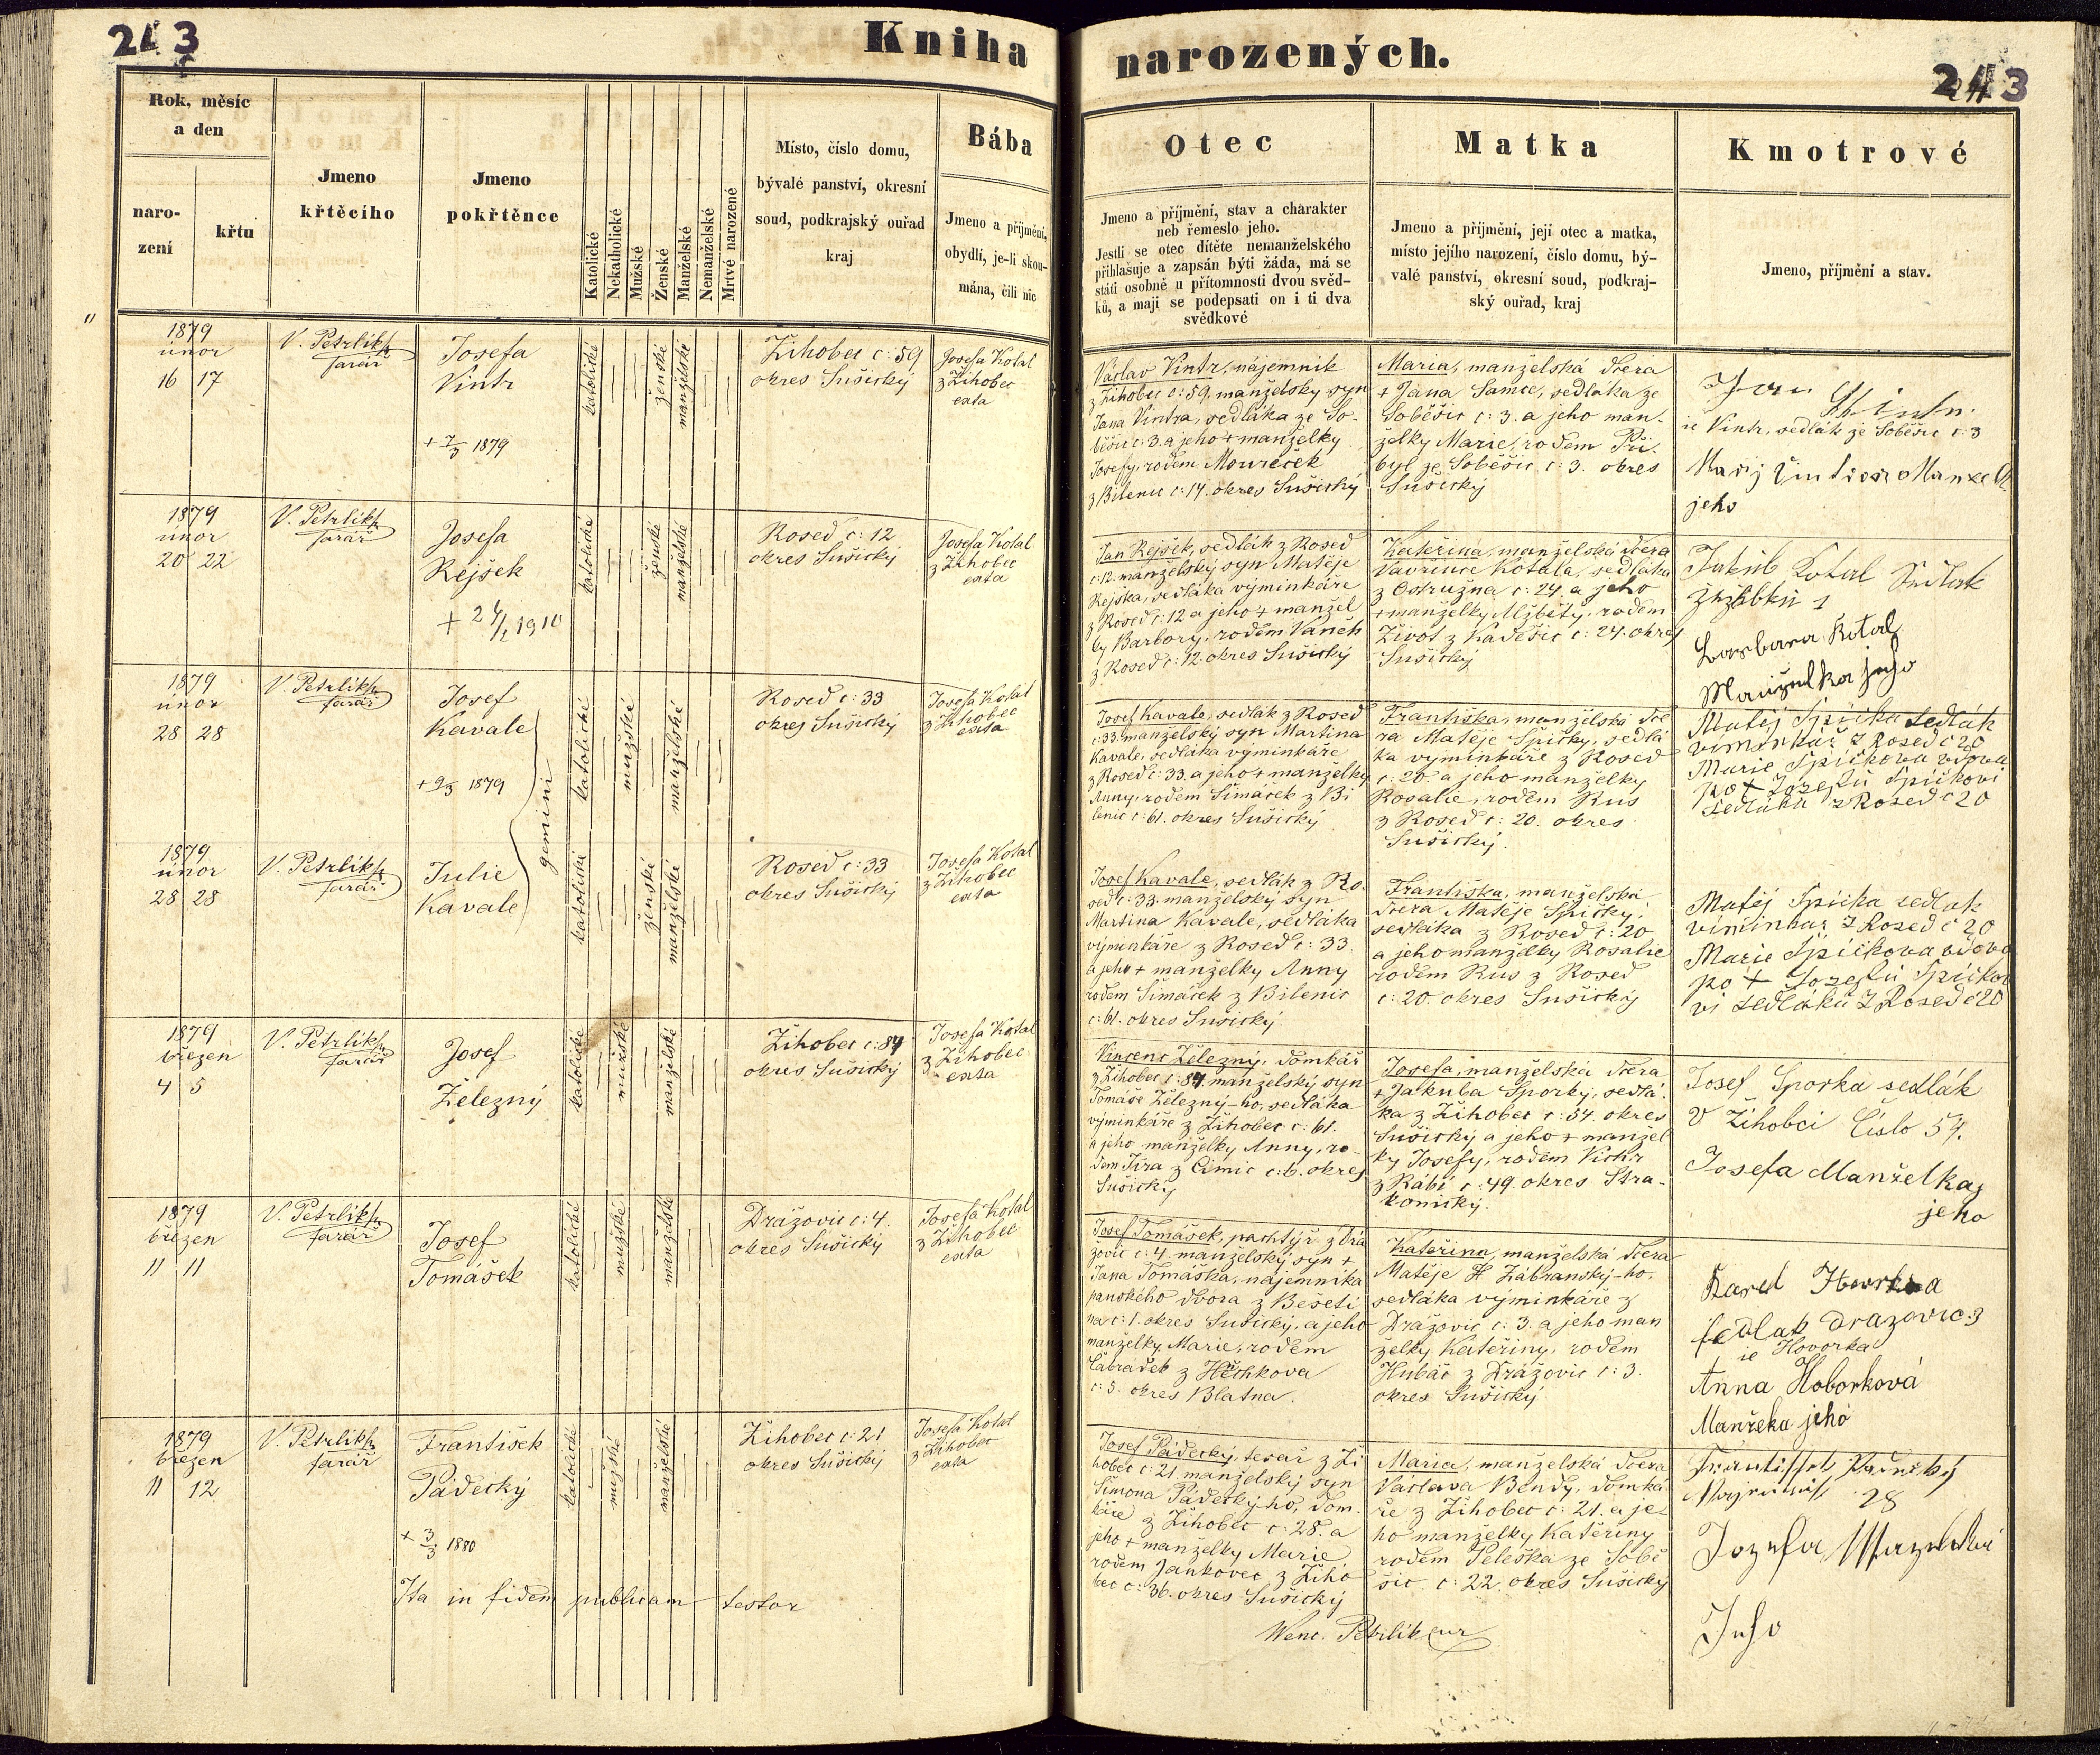 243
Kniha
narozených.
243
Rok, měsíc
a den
naro-
zení
křtu
Jmeno
křtěcího
Jmeno
pokřtěnce
Katolické
Nekatholické
Mužské
Ženské
Manželské
Nemanželské
Mrtvé narozené
Místo, číslo domu,
bývalé panství, okresní
soud, podkrajský ouřad
kraj
Bába
Jmeno a příjmění,
obydlí, je-li skou-
mána, čili nic
Otec
Jmeno a příjmění, stav a charakter
neb řemeslo jeho.
Jestli se otec dítěte nemanželského
přihlašuje a zapsán býti žáda, má se
státi osobně u přítomnosti dvou svěd-
ků, a mají se podepsati on i ti dva
svědkové
Matka
Jmeno a příjmění, její otec a matka,
místo jejího narození, číslo domu, bý-
valé panství, okresní soud, podkraj-
ský ouřad, kraj
Kmotrové
Jmeno, příjmění a stav.
1879
únor
16 17
V. Petrlík
farář
Josefa
Vintr
+ 7/3 1879
katolické
ženské
manželské
Žihobec č: 59
okres Sušický
Josefa Kotal
z Žihobec
exta
Václav Vintr, nájemník
z Žihobec č: 59. manželský syn
Jana Vintra, sedláka ze So-
běšic č: 3. a jeho + manželky
Josefy, rodem Mowreček
z Bilenic č: 14. okres Sušický
Maria, manželská dcera
+ Jana Samce, sedláka ze
Soběšic č: 3. a jeho man-
želky Marie, rodem Při-
byl ze Soběšic č: 3. okres
Sušický
Jan
ie Vintr, sedlák ze Soběšic č: 3
jeho
1879
únor
20 22
V. Petrlík
farář
Josefa
Rejšek
+ 24/1 1910
katolické
ženské
manželské
Rosed č: 12
okres Sušický
Josefa Kotal
z Žihobec
exta
Jan Rejšek, sedlák z Rosed
č: 12. manželský syn Matěje
Rejska, sedláka výminkáře
z Rosed č: 12 a jeho + manžel
ky Barbory, rodem Vaněk
z Rosed č: 12. okres Sušický
Kateřina, manželská dcera
Vavřince Kotala, sedláka
z Ostružna č: 24. a jeho
+ manželky Alžběty, rodem
Život z Kadešic č: 24. okres
Sušický
Jakub Kotal Sedlak
Barbara Kotal
Manželka jeho
1879
únor
28 28
V. Petrlík
farář
Josef
Kavale
+ 9/3 1879
gemini
katolické
mužské
manželské
Rosed č: 33
okres Sušický
Josefa Kotal
z Žihobec
exta
Josef Kavale, sedlák z Rosed
č: 33. manželský syn Martina
Kavale, sedláka výminkáře
z Rosed č: 33. a jeho + manželky
Anny, rodem Šimáček z Bi
lenic č: 61. okres Sušický
Františka, manželská dce
ra Matěje Špičky, sedlá
ka výminkáře z Rosed
č: 20. a jeho manželky
Rosalie, rodem Rus
z Rosed č: 20. okres
Sušický.
Matěj Spička sedlák
viminkář z Rosed č 20
Marie Spičkova vdova
po + Jozefu Spičkovi
sedláku z Rosed č 20
1879
únor
28 28
V. Petrlík
farář
Julie
Kavale
katolické
ženské
manželské
Rosed č: 33
okres Sušický
Josefa Kotal
z Žihobec
exta
Josef Kavale, sedlák z Ro-
sed č: 33. manželský syn
Martina Kavale, sedláka
výminkáře z Rosed č: 33.
a jeho + manželky Anny
rodem Šimáček z Bilenic
č: 61. okres Sušický.
Františka, manželská
dcera Matěje Špičky,
sedláka z Rosed č: 20
a jeho manželky Rosalie
rodem Rus z Rosed
č: 20. okres Sušický
Matěj Spička sedlak
viminkař z Rosed č 20
Marie Spičkova vdova
po + Jozefu Spičko
vi sedláku z Rosed č 20
1879
březen
4 5
V. Petrlík
farář
Josef
Železný
katolické
mužské
manželské
Žihobec č: 84
okres Sušický
Josefa Kotal
z Žihobec
exta
Vincenc Železný, domkář
z Žihobec č: 84. manželský syn
Tomáše Železný-ho, sedláka
výminkáře z Žihobec č: 61.
a jeho manželky Anny, ro-
dem Jíra z Čimic č: 6. okres
Sušický
Josefa, manželská dcera
+ Jakuba Sporky, sedlá-
ka z Žihobec č: 54. okres
Sušický a jeho + manžel
ky Josefy, rodem Vichr
z Rábí č: 49. okres Stra-
konický.
Josef Sporka sedlák
v Žihobci Číslo 54.
Josefa Manželka
jeho
1879
březen
11 11
V. Petrlík
farář
Josef
Tomášek
katolické
mužské
manželské
Drážovic č: 4.
okres Sušický
Josefa Kotal
z Žihobec
exta
Josef Tomášek, pachtýř z Drá
žovic č: 4. manželský syn +
Jana Tomáška, nájemníka
panského dvora z Bešeti
na č: 1. okres Sušický, a jeho
manželky Marie, rodem
Čábrádek z
č: 5. okres Blatna.
Kateřina, manželská dcera
Matěje Zábranský-ho,
sedláka výminkáře z
Drážovic č: 3. a jeho man
želky Kateřiny, rodem
Hubač z Drážovic č: 3.
okres Sušický
Karel
sedlak Drazovic 3
ie Hovorka
Anna Hoborková
Manžeka jeho
1879
březen
11 12
V. Petrlík
farář
František
Pádecký
+ 3/3 1880
katolické
mužské
manželské
Žihobec č: 21
okres Sušický
Josefa Kotal
z Žihobec
exta
Josef Pádecký, tesař z Ži
hobec č: 21. manželský syn
Šimona Pádecký-ho, dom-
káře z Žihobec č: 28. a
jeho + manželky Marie
rodem Jankovec z Žiho
bec č: 36. okres Sušický
Maria, manželská dcera
Václava Bendy, domká
ře z Žihobec č: 21. a je-
ho manželky Kateřiny
rodem Peleška ze Sobě
šic č: 22. okres Sušický
28
Jozefa
Jeho
Ita in fidem publicam testor
Wenc. Petrlik cur